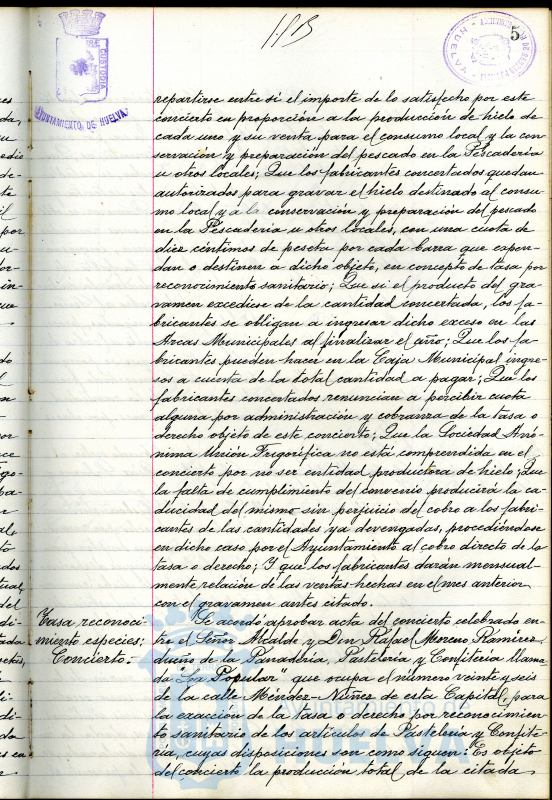 5
CUSTODIA
AYUNTAMIENTO DE HUELVA
HUELVA
repartirse entre sí el importe de lo satisfecho por este
concierto en proporción a la producción de hielo de
cada uno y su venta para el consumo local y la con-
servación y preparación del pescado en la Pescadería
u otros locales; Que los fabricantes concertados quedan
autorizados para gravar el hielo destinado al consu-
mo local y a la conservación y preparación del pescado
en la Pescadería u otros locales, con una cuota de
diez céntimos de peseta por cada barra que expen-
dan o destinen a dicho objeto, en concepto de tasa por
reconocimiento sanitario; Que si el producto del gra-
vamen excediese de la cantidad concertada, los fa-
bricantes se obligan a ingresar dicho exceso en las
Arcas Municipales al finalizar el año; Que los fa-
bricantes pueden hacer en la Caja Municipal ingre-
sos a cuenta de la total cantidad a pagar; Que los
fabricantes concertados renuncian a percibir cuota
alguna por administración y cobranza de la tasa o
derecho objeto de este concierto; Que la Sociedad Anó-
nima Unión Frigorífica no está comprendida en el
concierto por no ser entidad productora de hielo; Que
la falta de cumplimiento del convenio producirá la ca-
ducidad del mismo sin perjuicio del cobro a los fabri-
cantes de las cantidades ya devengadas, procediéndose
en dicho caso por el Ayuntamiento al cobro directo de la
tasa o derecho; Y que los fabricantes darán mensual-
mente relación de las ventas hechas en el mes anterior
con el gravamen antes citado.
Tasa reconoci-
miento especies;
Concierto.
Se acordó aprobar acta del concierto celebrado en-
tre el Señor Alcalde y Don Rafael Moreno Ramírez,
dueño de la Panadería, Pastelería y Confitería llama-
da "La Popular" que ocupa el número veinte y seis
de la calle Méndez-Núñez de esta Capital, para
la exacción de la tasa o derecho por reconocimien-
to sanitario de los artículos de Pastelería y Confite-
ría, cuyas disposiciones son como siguen: Es objeto
del concierto la producción total de la citada
Ayuntamiento de